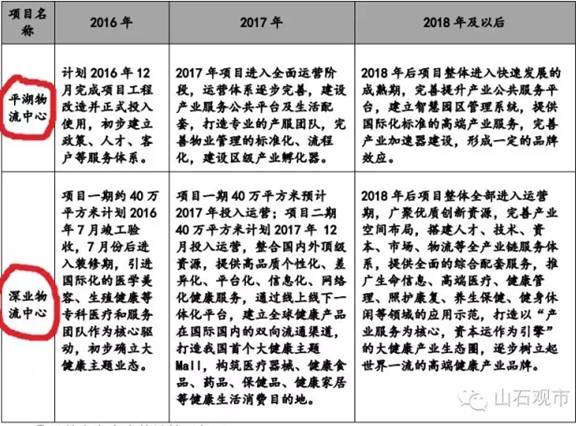 项目名称
2016 年
2017 年
2018 年及以后
平湖物
流中心
计划 2016 年 12
月完成项目工程
改造并正式投入
使用，初步建立
政策、人才、客
户等服务体系。
2017 年项目进入全面运营阶
段，运营体系逐步完善，建设
产业服务公共平台及生活配
套，打造专业的产服团队，完
善物业管理的标准化、流程
化，建设区级产业孵化器。
2018 年后项目整体进入快速发展的
成熟期，完善提升产业公共服务平
台，建立智慧园区管理系统，提供
国际化标准的高端产业服务，完善
产业加速器建设，形成一定的品牌
效应。
深业物
流中心
项目一期约 40 万
平方米计划 2016
年 7 月竣工验
收，7 月份后进
入装修期，引进
国际化的医学美
容、生殖健康等
专科医疗和服务
团队作为核心驱
动，初步确立大
健康主题业态。
项目一期 40 万平方米预计
2017 年投入运营；项目二期
40 万平方米计划 2017 年 12
月投入运营，整合国内外顶级
资源，提供高品质个性化、差
异化、平台化、信息化、网络
化健康服务，通过线上线下一
体化平台，建立全球健康产品
在国际国内的双向流通渠道，
打造我国首个大健康主题
Mall，构筑医疗器械、健康食
品、药品、保健品、健康家居
等健康生活消费目的地。
2018 年后项目整体全部进入运营
期，广聚优质创新资源，完善产业
空间布局，搭建人才、技术、资
本、市场、物流等全产业链服务体
系，提供全面的综合配套服务，推
广生命信息、高端医疗、健康管
理、照护康复、养生保健、健身休
闲等领域的应用示范，打造以“产
业服务为核心，资本运作为引擎”
的大健康产业生态圈，逐步树立起
世界一流的高端健康产业品牌。
山石观市